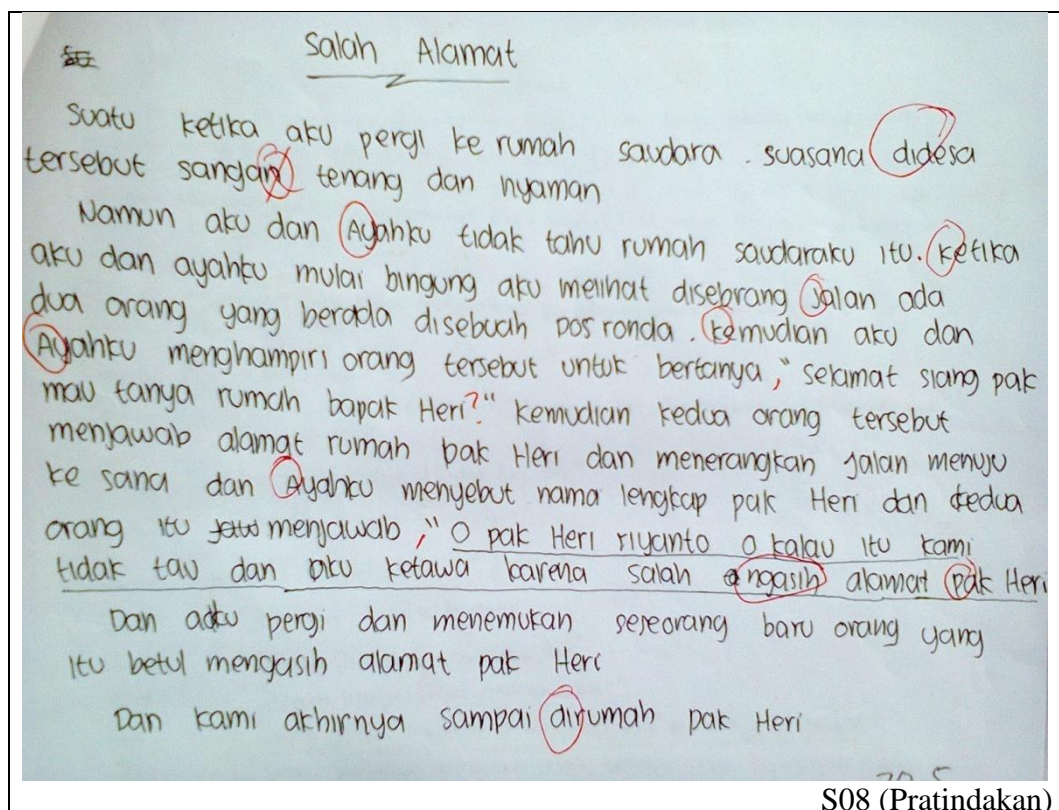 Salah Alamat
Suatu ketika aku pergi ke rumah saudara. suasana didesa
tersebut sangan tenang dan nyaman
Namun aku dan Ayahku tidak tahu rumah saudaraku itu. ketika
aku dan ayahku mulai bingung aku melihat disebrang jalan ada
dua orang yang berada disebuah pos ronda. kemudian aku dan
Ayahku menghampiri orang tersebut untuk bertanya, "selamat siang pak
mau tanya rumah bapak Heri?" kemudian kedua orang tersebut
menjawab alamat rumah pak Heri dan menerangkan jalan menuju
ke sana dan Ayahku menyebut nama lengkap pak Heri dan kedua
orang itu menjawab, "O pak Heri riyanto o kalau itu kami
tidak tau dan aku ketawa karena salah ngasih alamat pak Heri
Dan aku pergi dan menemukan seseorang baru orang yang
itu betul mengasih alamat pak Heri
Dan kami akhirnya sampai dirumah pak Heri
S08 (Pratindakan)